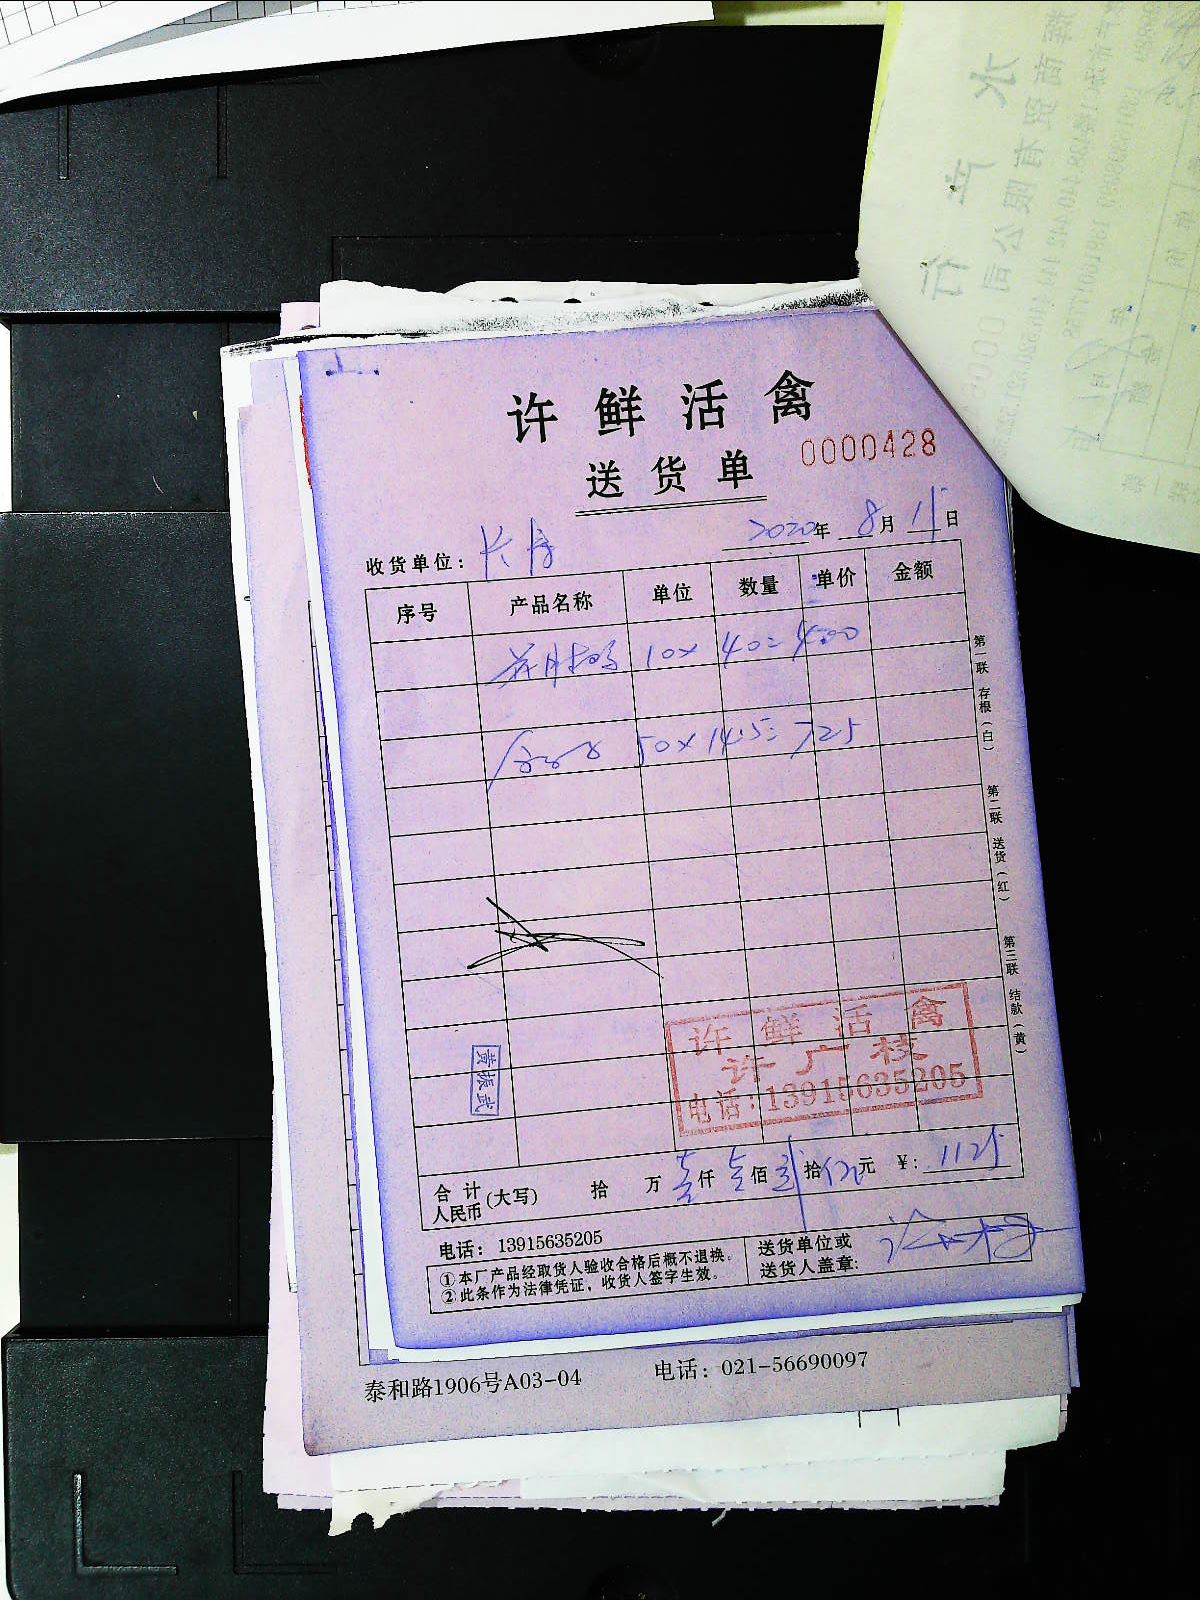 许鲜活禽
送货单
0000428
收货单位：长
2020年 8月 15日
序号 产品名称 单位 数量 单价 金额
10× 40= 400
50×14.5= 725
第一联 存根（白）
第二联 送货（红）
第三联 结款（黄）
黄振武
许鲜活禽
许广枝
电话：13915635205
合计人民币(大写) 拾 万 壹仟 壹佰 贰拾 伍元 ¥：1125
电话：13915635205
①本厂产品经取货人验收合格后概不退换。
②此条作为法律凭证，收货人签字生效。
送货单位或
送货人盖章:
泰和路1906号A03-04 电话：021-56690097